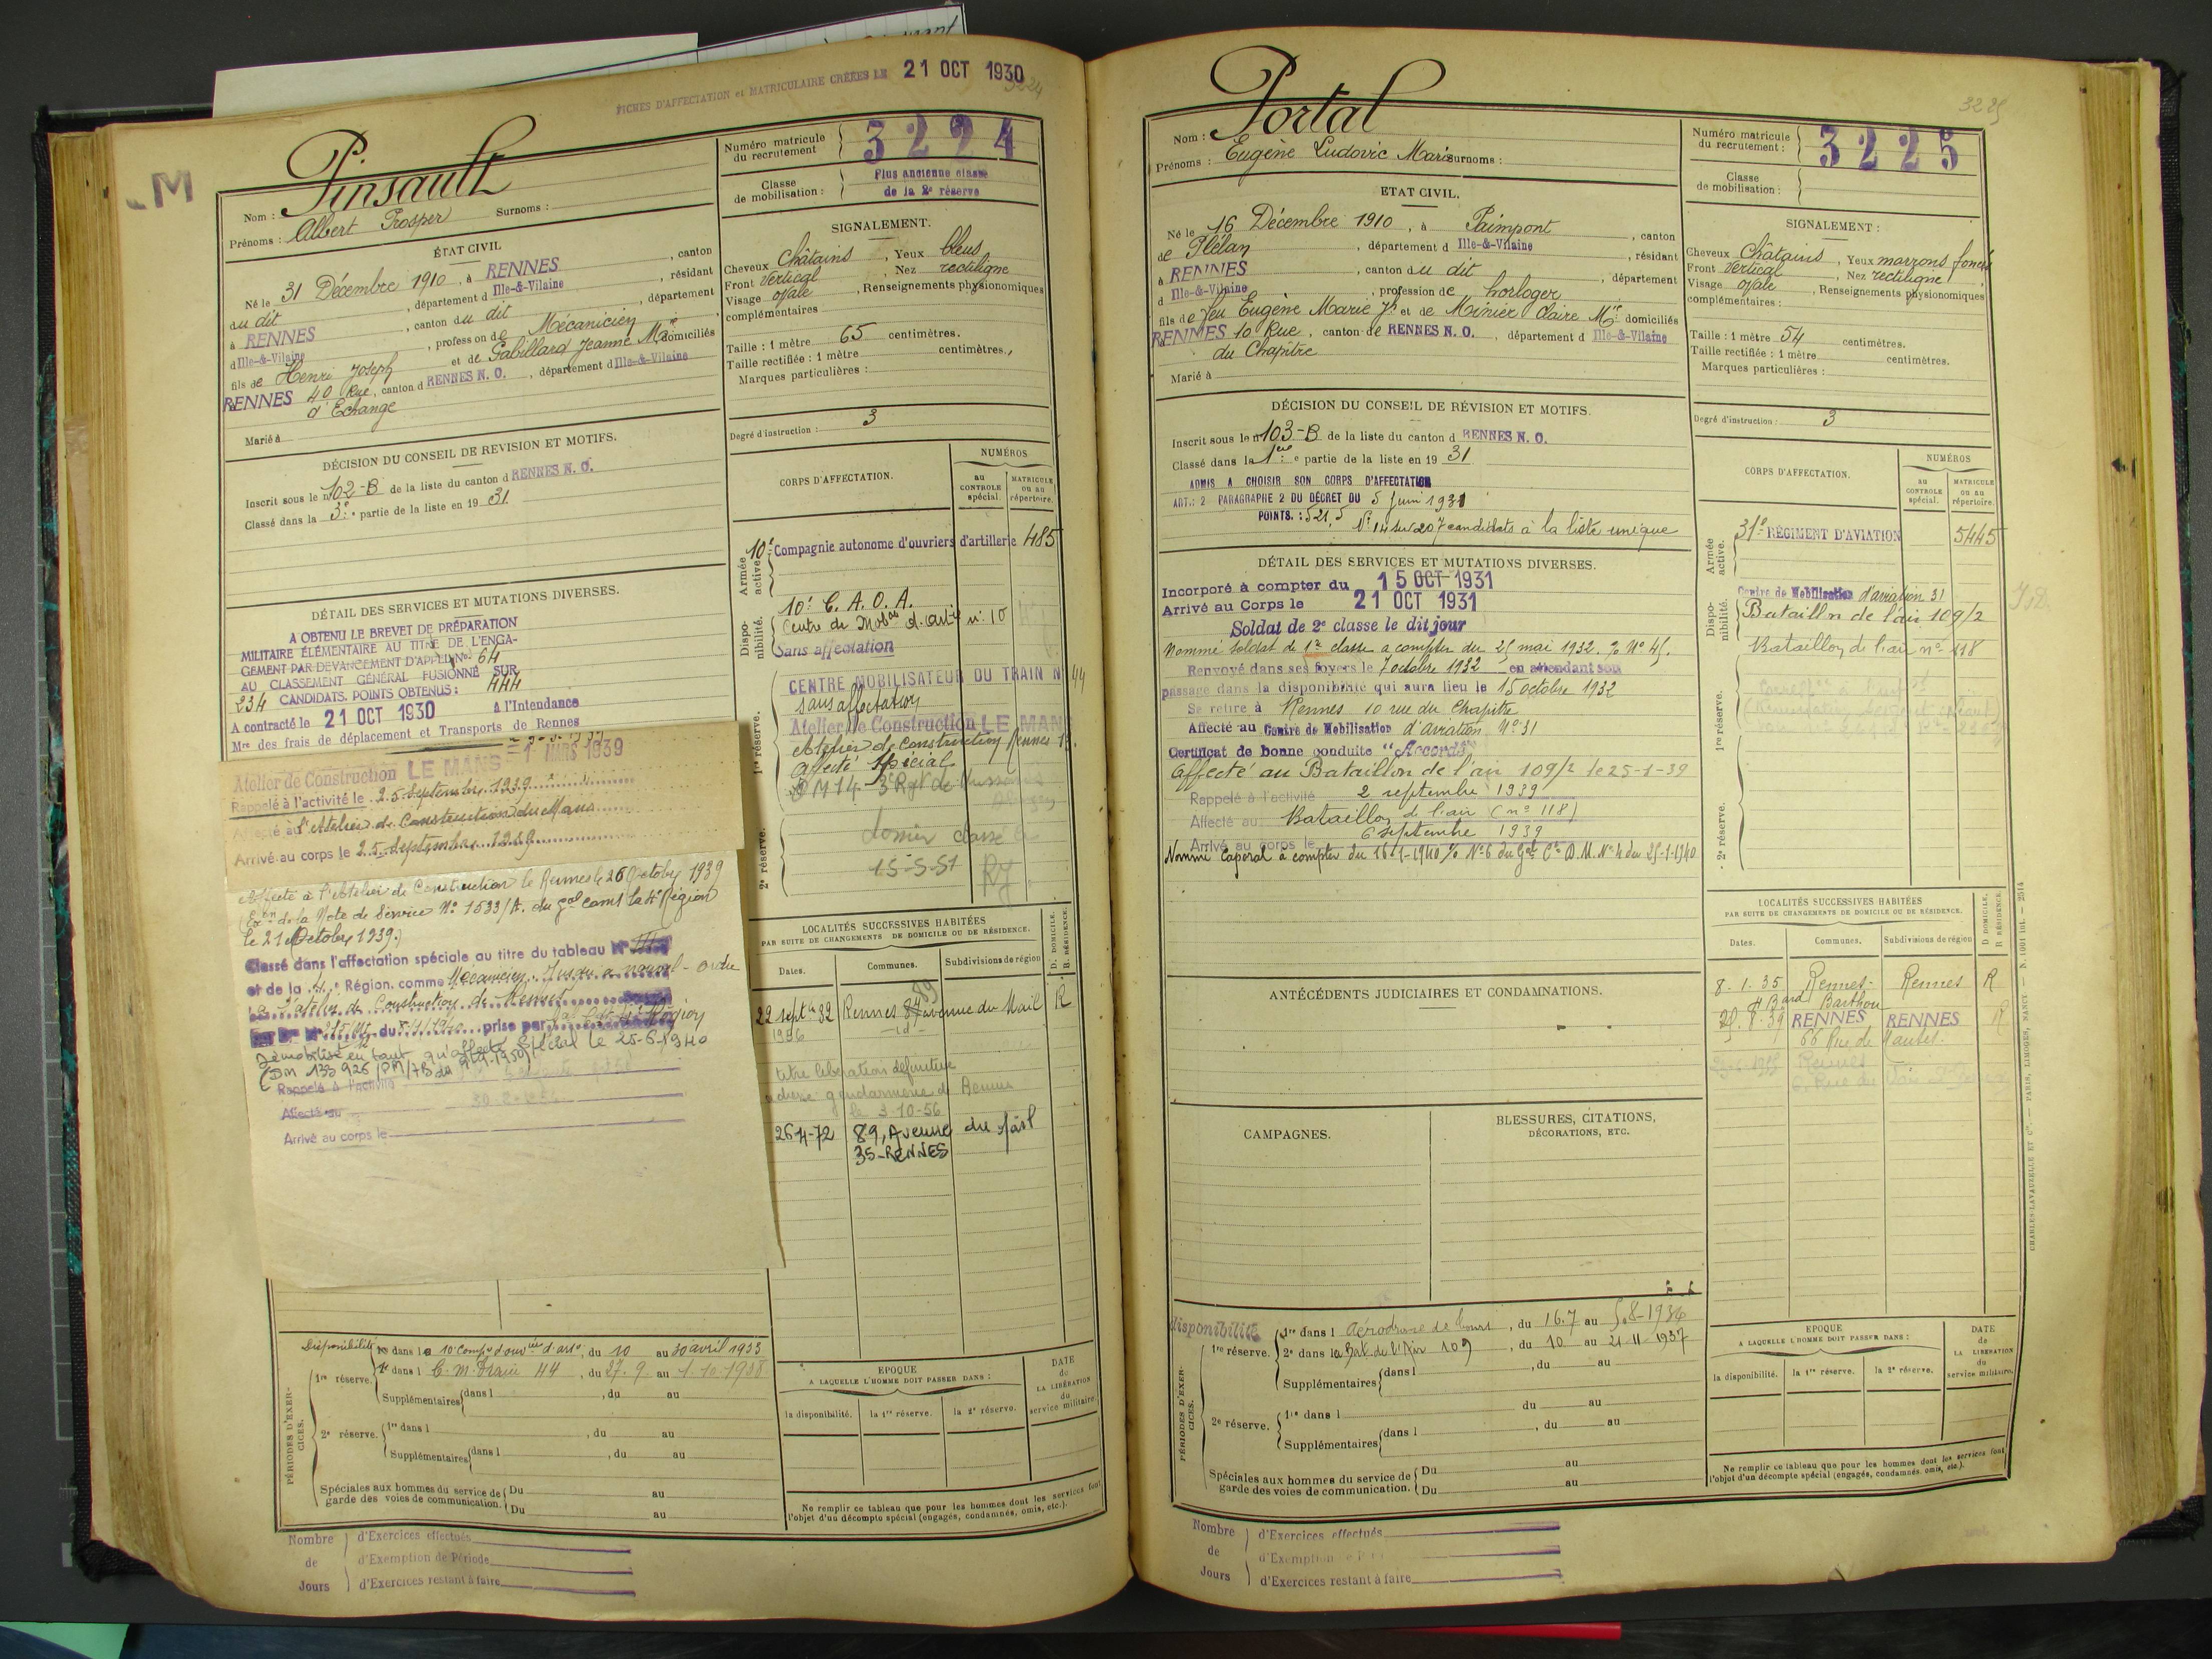 FICHES D'AFFECTATION et MATRICULAIRE CRÉÉES LE 21 OCT 1930
3224
M
Nom : Pinsault
Prénoms : Albert Prosper Surnoms :
Numéro matricule du recrutement 3224
Classe de mobilisation : Plus ancienne classe de la 2e réserve
ÉTAT CIVIL
Né le 31 Décembre 1910, à RENNES, canton
du dit, département d Ille-&-Vilaine, résidant
à RENNES, canton du dit, département
d Ille-&-Vilaine, profession de Mécanicien
fils de Henri Joseph et de Gabillard Jeanne Mie domiciliés
RENNES 40 Rue, canton d RENNES N. O., département d Ille-&-Vilaine
d'Echange
Marié à
SIGNALEMENT.
Cheveux Châtains, Yeux bleus
Front Vertical, Nez rectiligne
Visage ovale, Renseignements physionomiques
complémentaires
Taille : 1 mètre 65 centimètres.
Taille rectifiée : 1 mètre centimètres.
Marques particulières :
Degré d'instruction : 3
DÉCISION DU CONSEIL DE REVISION ET MOTIFS.
Inscrit sous le n° 102-B de la liste du canton d RENNES N. O.
Classé dans la 3e partie de la liste en 19 31
DÉTAIL DES SERVICES ET MUTATIONS DIVERSES.
A OBTENU LE BREVET DE PRÉPARATION
MILITAIRE ÉLÉMENTAIRE AU TITRE DE L'ENGA-
GEMENT PAR DEVANCEMENT D'APPEL No. 64
AU CLASSEMENT GÉNÉRAL FUSIONNÉ SUR
234 CANDIDATS. POINTS OBTENUS : 444
A contracté le 21 OCT 1930 à l'Intendance
Mre des frais de déplacement et Transports de Rennes
Atelier de Construction LE MANS - 1 MARS 1939
Rappelé à l'activité le 25 Septembre 1939
Affecté à l'Atelier de Construction du Mans
Arrivé au corps le 25 Septembre 1939
Affecté à l'Atelier de Construction de Rennes le 26 Octobre 1939
(Exon de la Note de Service No 1533/A. du gal Comt la 4e Région
le 21 Octobre 1939.)
Classé dans l'affectation spéciale au titre du tableau No III
et de la 4e Région comme Mécanicien Jusqu'à nouvel ordre
à l'atelier de Construction de Rennes
prise par
Démobilisé en tant qu'affecté spécial le 25-6-1940
Rappelé à l'activité
Affecté au
Arrivé au corps le
CORPS D'AFFECTATION.
NUMÉROS
au CONTROLE spécial.
MATRICULE ou au répertoire.
Armée active. 10e Compagnie autonome d'ouvriers d'artillerie 485
Dispo- nibilité. 10e C. A. O. A.
Centre de Mobon d'artie n° 10
Sans affectation
1re réserve. CENTRE MOBILISATEUR DU TRAIN N 44
sans affectation
Atelier de Construction LE MANS
Atelier de Construction Rennes
Affecté Spécial
2e réserve.
dossier classé le
15-5-51
LOCALITÉS SUCCESSIVES HABITÉES
PAR SUITE DE CHANGEMENTS DE DOMICILE OU DE RÉSIDENCE.
D. DOMICILE. R. RÉSIDENCE.
Dates. Communes. Subdivisions de région
22 septbre 32 Rennes 87 89 avenue du Mail R
1936 - id -
titre libération définitive
adressé gendarmerie de Rennes
le 3-10-56
26-4-72 89, Avenue du Mail
35-RENNES
PÉRIODES D'EXER- CICES.
Disponibilité dans la 10 Compie d'ouvriers d'artie, du 10 au 30 avril 1933
1re réserve. 1re dans l C. m. Train 44, du 27.9 au 1.10.1938
Supplémentaires dans l , du au
2e réserve. 1re dans l , du au
Supplémentaires dans l , du au
Spéciales aux hommes du service de garde des voies de communication. Du au
Du au
EPOQUE
A LAQUELLE L'HOMME DOIT PASSER DANS :
la disponibilité. la 1re réserve. la 2e réserve.
DATE de LA LIBÉRATION du service militaire.
Ne remplir ce tableau que pour les hommes dont les services font
l'objet d'un décompte spécial (engagés, condamnés, omis, etc.).
Nombre de Jours
d'Exercices effectués
d'Exemption de Période
d'Exercices restant à faire
3225
Nom : Portal
Prénoms : Eugène Ludovic Marie Surnoms :
Numéro matricule du recrutement : 3225
Classe de mobilisation :
ETAT CIVIL.
Né le 16 Décembre 1910, à Paimpont, canton
de Plélan, département d Ille-&-Vilaine, résidant
à RENNES, canton du dit, département
d Ille-&-Vilaine, profession de horloger
fils de feu Eugène Marie Jh et de Minier Claire Mie domiciliés
RENNES 10 Rue, canton de RENNES N. O., département d Ille-&-Vilaine
du Chapitre
Marié à
SIGNALEMENT :
Cheveux Châtains, Yeux marrons foncés
Front Vertical, Nez rectiligne
Visage ovale, Renseignements physionomiques
complémentaires :
Taille : 1 mètre 54 centimètres.
Taille rectifiée : 1 mètre centimètres.
Marques particulières :
Degré d'instruction : 3
DÉCISION DU CONSEIL DE RÉVISION ET MOTIFS.
Inscrit sous le n° 103-B de la liste du canton d RENNES N. O.
Classé dans la 1ere partie de la liste en 19 31
ADMIS A CHOISIR SON CORPS D'AFFECTATION
ART.: 2 PARAGRAPHE 2 DU DÉCRET DU 5 Juin 1931
POINTS. : 521,5 No 14 sur 207 candidats à la liste unique
DÉTAIL DES SERVICES ET MUTATIONS DIVERSES.
Incorporé à compter du 15 OCT 1931
Arrivé au Corps le 21 OCT 1931
Soldat de 2e classe le dit jour
Nommé soldat de 1re classe à compter du 25 mai 1932. O No 45.
Renvoyé dans ses foyers le 7 octobre 1932 en attendant son
passage dans la disponibilité qui aura lieu le 15 octobre 1932
Se retire à Rennes 10 rue du Chapitre
Affecté au Centre de Mobilisation d'aviation No 31
Certificat de bonne conduite "Accordé"
Affecté au Bataillon de l'air 109/2 le 25-1-39
Rappelé à l'activité 2 septembre 1939
Affecté au Bataillon de l'air (no 118)
Arrivé au corps le 6 septembre 1939
Nommé Caporal à compter du 16-1-1940 O No 6 du Gal Ct D.M. No 4 du 25-1-1940
CORPS D'AFFECTATION.
NUMÉROS
au CONTROLE spécial.
MATRICULE ou au répertoire.
Armée active. 31e RÉGIMENT D'AVIATION 5445
Dispo- nibilité. Centre de Mobilisation d'aviation 31
Bataillon de l'air 109/2
Bataillon de l'air no 118
1re réserve.
2e réserve.
ANTÉCÉDENTS JUDICIAIRES ET CONDAMNATIONS.
CAMPAGNES.
BLESSURES, CITATIONS, DÉCORATIONS, ETC.
LOCALITÉS SUCCESSIVES HABITÉES
PAR SUITE DE CHANGEMENTS DE DOMICILE OU DE RÉSIDENCE.
D DOMICILE. R RÉSIDENCE.
Dates. Communes. Subdivisions de région
8.1.35 Rennes Rennes R
4 Bard Barthou
25.8.39 RENNES RENNES R
66 Rue de Nantes.
Rennes
PÉRIODES D'EXER- CICES.
disponibilité
1re réserve. 1re dans l Aérodrome de Tours, du 16.7 au 5.8-1936
2e dans la Bat de l'Air 109, du 10 au 21-11-1937
, du au
Supplémentaires dans l
2e réserve. 1re dans l du au
Supplémentaires dans l , du au
Spéciales aux hommes du service de garde des voies de communication. Du au
Du au
EPOQUE
A LAQUELLE L'HOMME DOIT PASSER DANS :
la disponibilité. la 1re réserve. la 2e réserve.
DATE de LA LIBÉRATION du service militaire.
Ne remplir ce tableau que pour les hommes dont les services font
l'objet d'un décompte spécial (engagés, condamnés, omis, etc.).
Nombre de Jours
d'Exercices effectués
d'Exemption
d'Exercices restant à faire
CHARLES-LAVAUZELLE ET Cie. — PARIS, LIMOGES, NANCY — N. 1001 int. — 2514